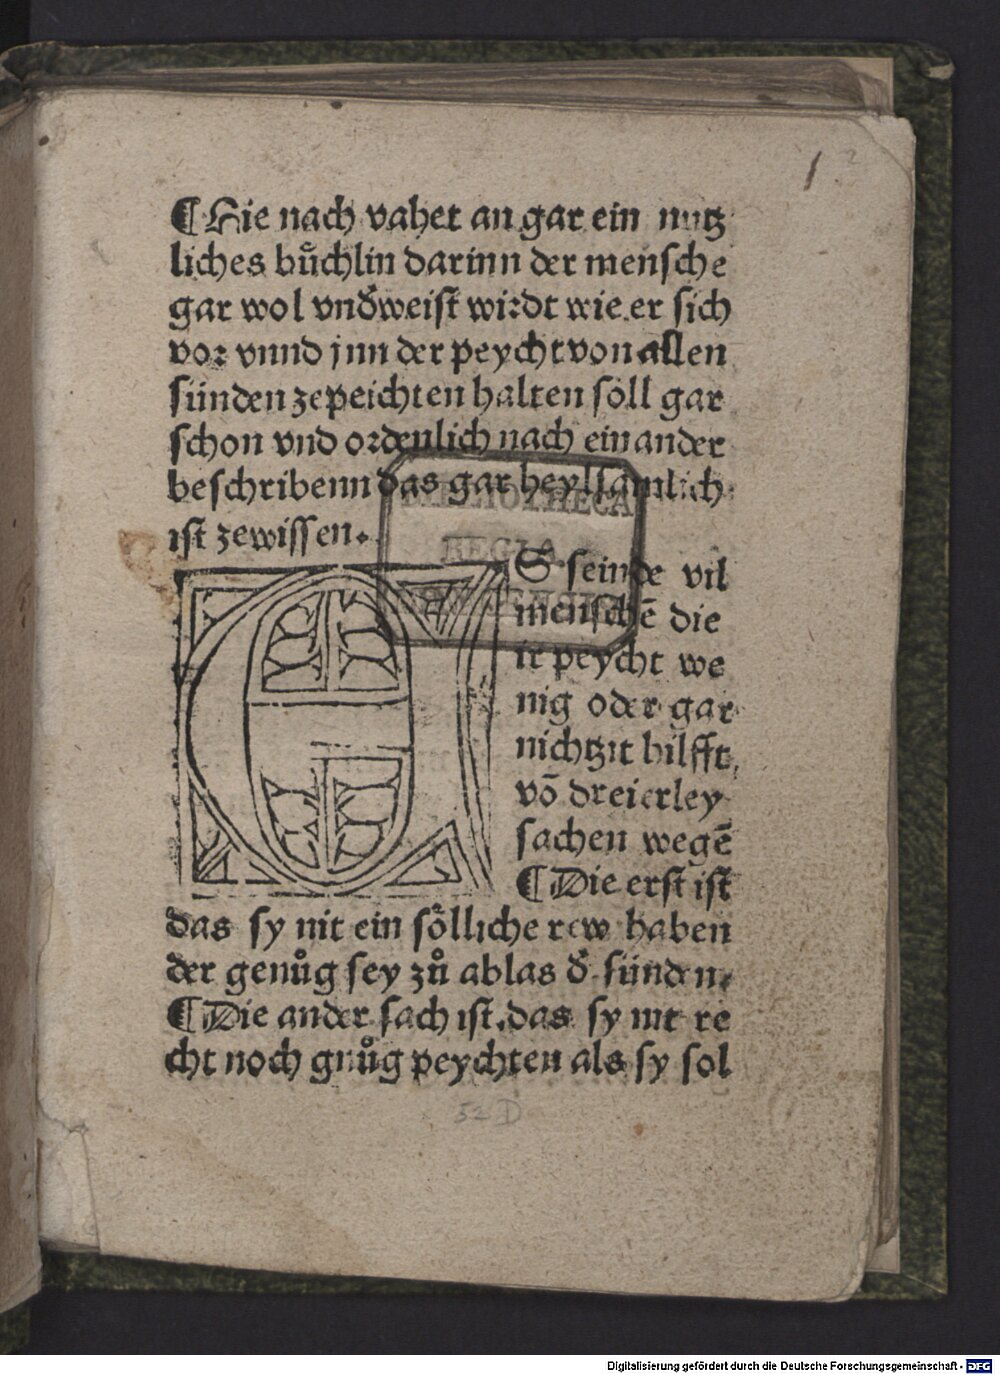 ¶ Hie nach vahet an gar ein nutz
liches bůchlin darinn der mensche
gar wol vnđweist wirdt wie er sich
vor vnnd jnn der peycht von allen
sünden zepeichten halten soll gar
schon vnd ordenlich nach einander
beschribenn das gar heylsamlich
ist zewissen.
ES seinde vil
menschē die
ir peycht we
nig oder gar
nichtzit hilfft,
vō dreierley
sachen wegē
¶ Die erst ist
das sy nit ein sölliche rew haben
der genůg sey zů ablas đ sünden.
¶ Die ander sach ist, das sy nit re
cht noch gnůg peychten als sy sol
BIBLIOTHECA
REGIA
MONACENSIS
1
2
52 D
Digitalisierung gefördert durch die Deutsche Forschungsgemeinschaft - DFG